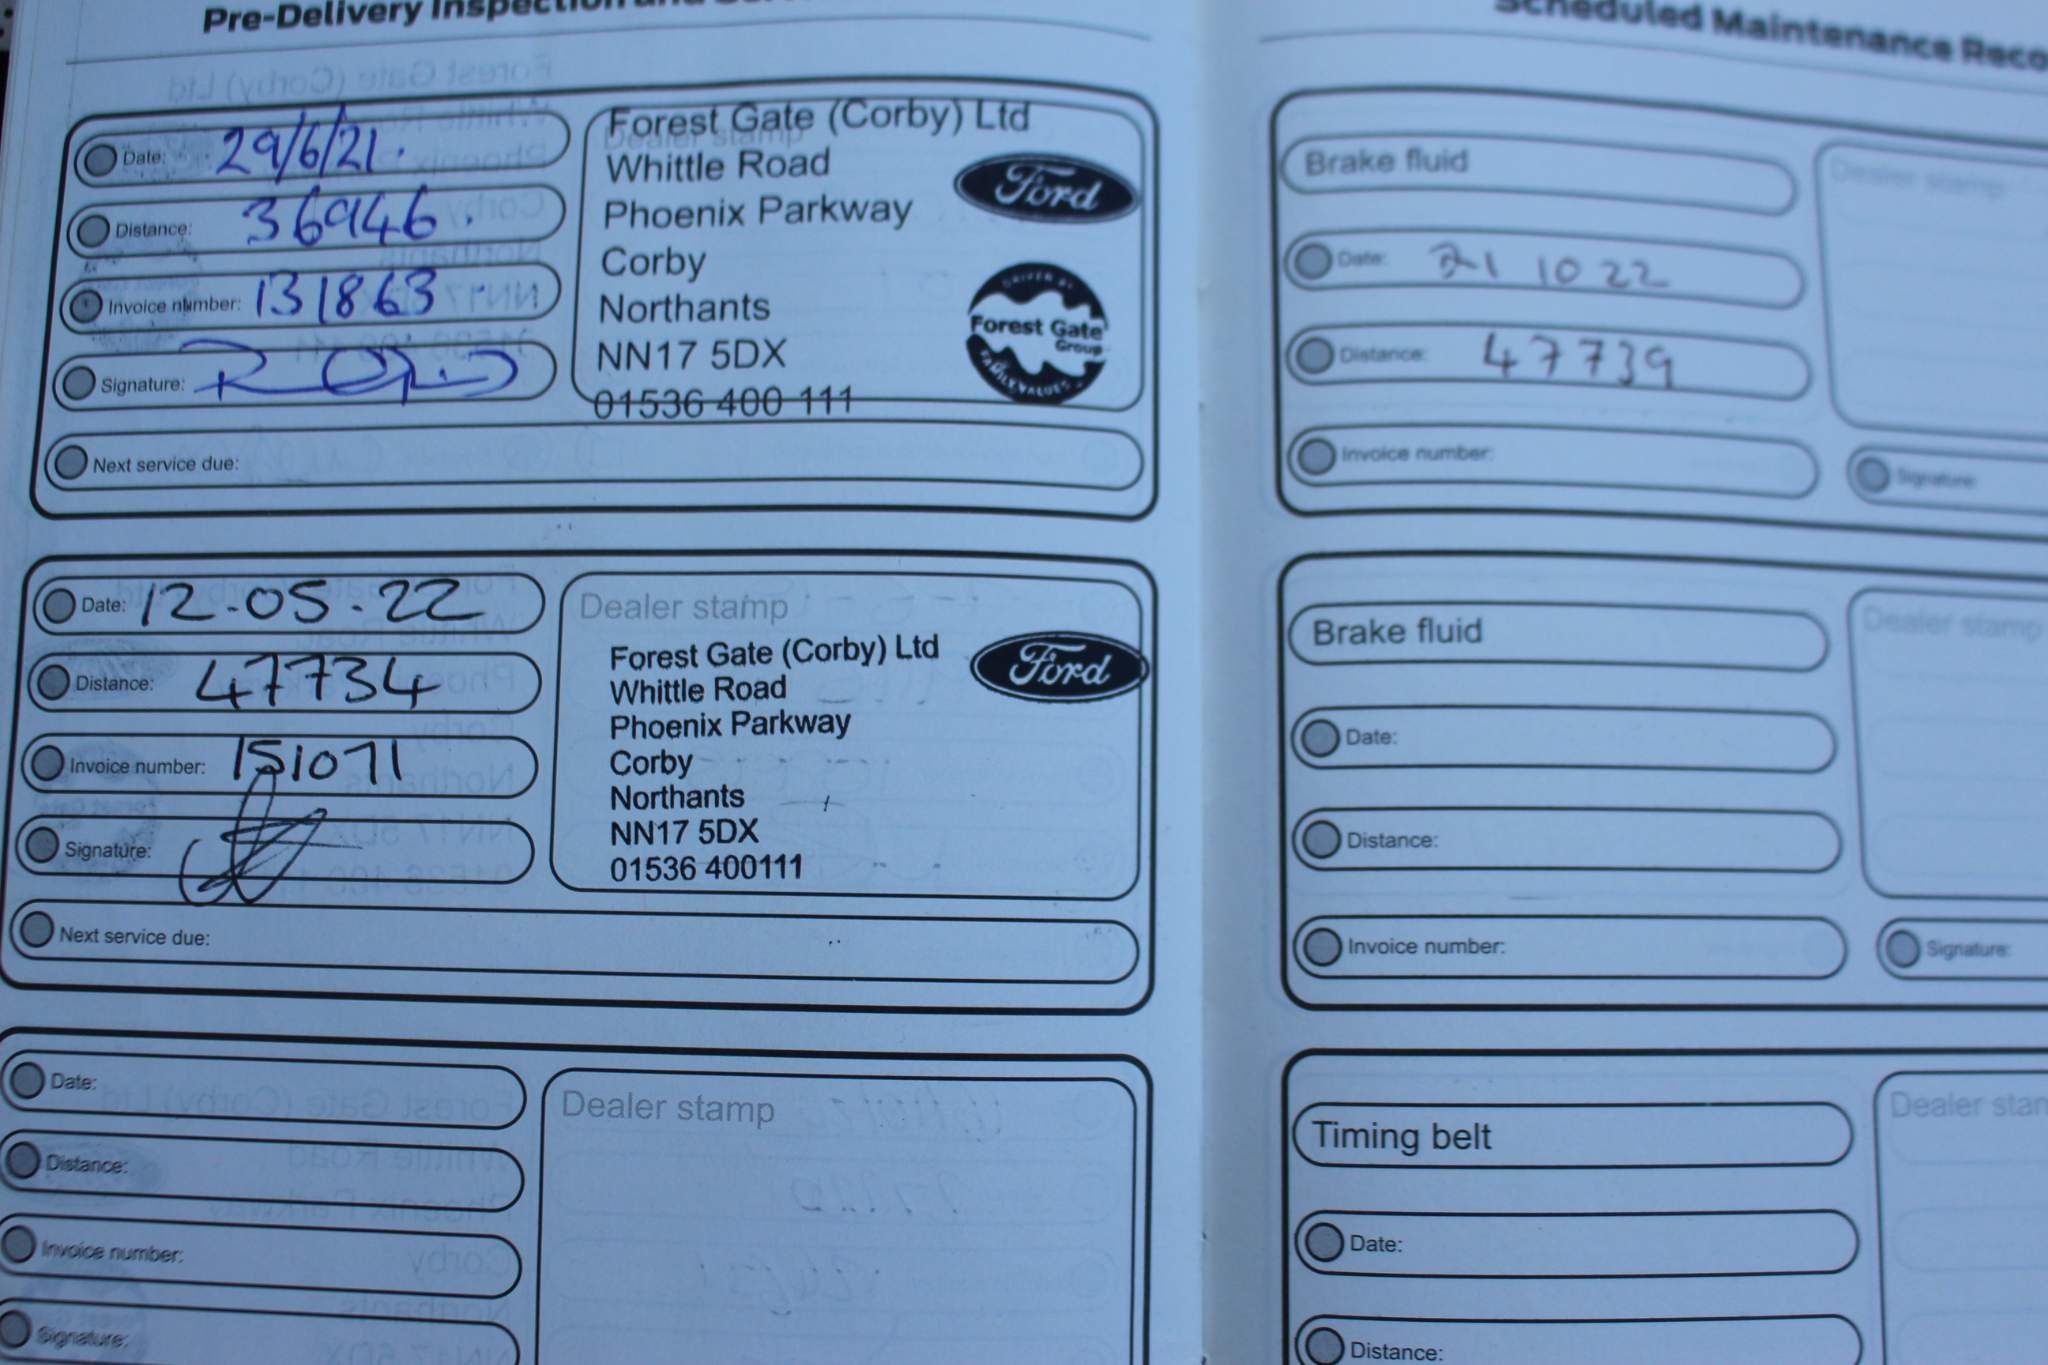 Pre-Delivery Inspection and
Date: 29/6/21.
Distance: 36946.
Invoice number: 131863
Signature:
Next service due:
Dealer stamp
Forest Gate (Corby) Ltd
Whittle Road
Phoenix Parkway
Corby
Northants
NN17 5DX
01536 400 111
Ford
DRIVEN BY
Forest Gate
Group
FAMILY VALUES
Date: 12.05.22
Distance: 47734
Invoice number: 151071
Signature:
Next service due:
Dealer stamp
Forest Gate (Corby) Ltd
Whittle Road
Phoenix Parkway
Corby
Northants
NN17 5DX
01536 400111
Ford
Date:
Distance:
Invoice number:
Signature:
Dealer stamp
Scheduled Maintenance
Brake fluid
Date: 21 10 22
Distance: 47739
Invoice number:
Dealer stamp
Signature:
Brake fluid
Date:
Distance:
Invoice number:
Dealer stamp
Signature:
Timing belt
Date:
Distance:
Dealer